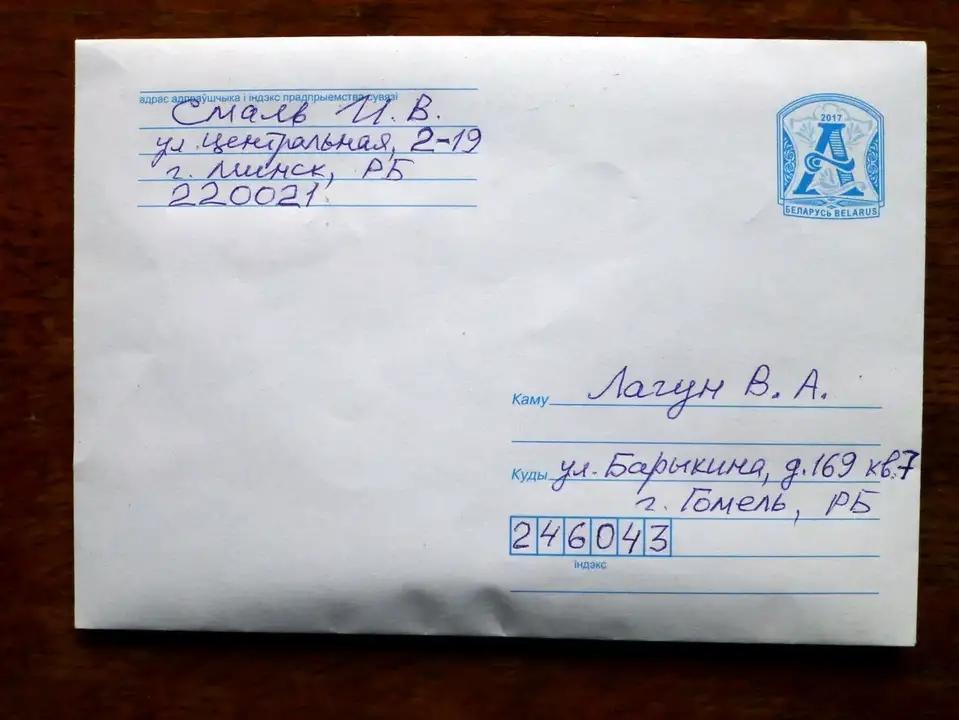 адрас адпраўшчыка і індэкс прадпрыемства сувязі
Смаль И. В.
ул. Центральная, 2-19
г. Минск, РБ
220021
2017
А
БЕЛАРУСЬ BELARUS
Каму Лагун В. А.
Куды ул. Барыкина, д. 169 кв. 7
г. Гомель, РБ
246043
індэкс